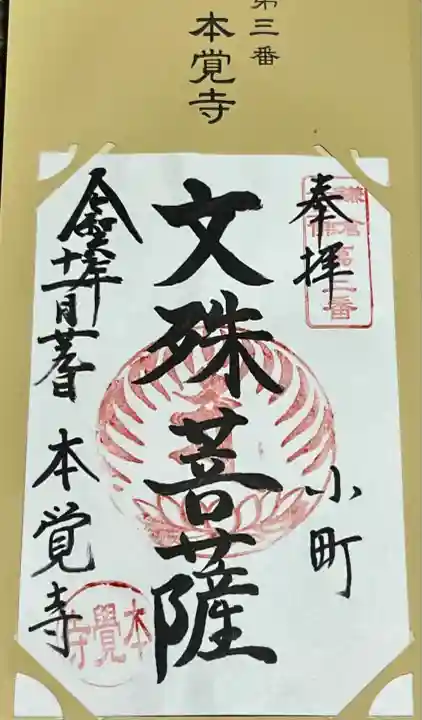 第三番
本覚寺
奉拝
小町
文殊菩薩
令和六年
十一月
本覚寺
本覺寺